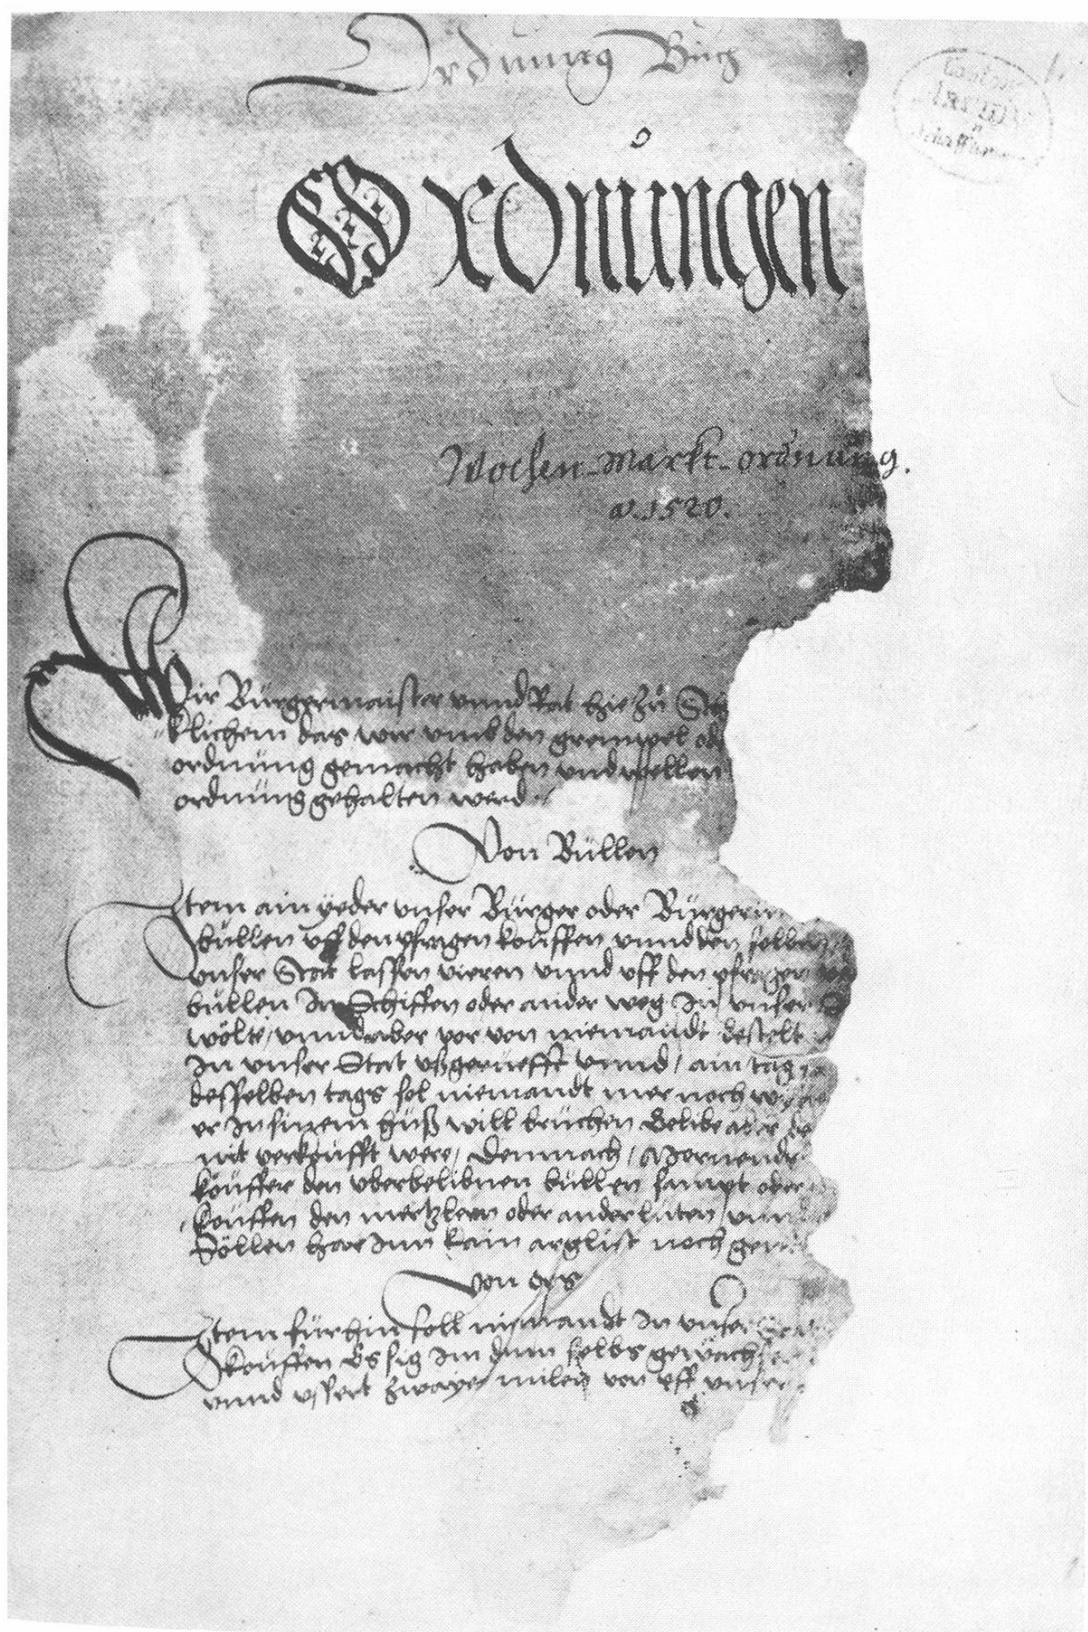 Ordnung Buch
Canton
Schaffhau
Ordnůngen
Wochen-Markt-ordnung.
aō 1520.
Wir Bürgermaister vnnd Rat hie zů
klichem das wir vmb den grempel od
ordnüng gemacht haben vnd wellen
ordnüng gehalten werd
Von Büllen
Item ain yeder vnser Bürger oder Bürgerin
büllen vff den pfragen kouffen vnnd den selben
vnser Stat lassen vieren vnnd vff den pfragen
büllen In Schiffen oder ander weg In vnser
wölte, vnnd aber vor von niemandt bestelt
In vnser Stat vßgerüefft vnnd, ain tag
desselben tags sol niemandt mer noch
er In sinem huß will brüchen Belibe aber
nit verkoufft were, Dennnach, Mornende
kouffer den vberbelibnen büllen sampt oder
kouffen den mertzlern oder ander lüten, vnn
Söllen har Inn kain arglist noch
Von
Item fürhin soll niemandt In vnser
kouffen Es sig Im dann selbs gewachsen
vnnd vssert zwayer milen von vff vnser